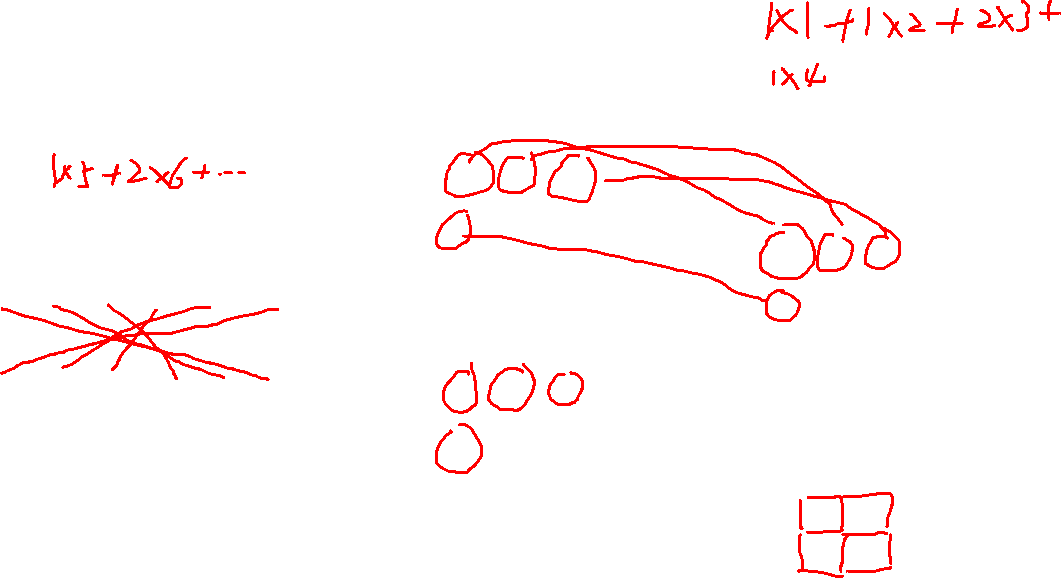 1×1+1×2+2×3+
1×4
1×5+2×6+...